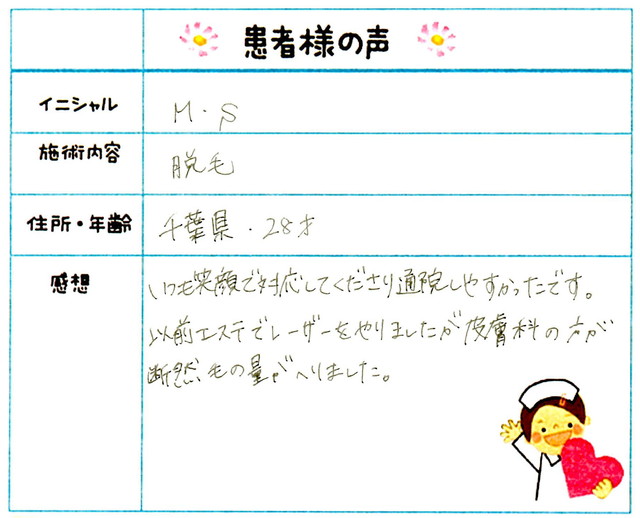 患者様の声
イニシャル
M・S
施術内容
脱毛
住所・年齢
千葉県・28才
感想
いつも笑顔で対応してくださり通院しやすかったです。
以前エステでレーザーをやりましたが皮膚科の方が
断然毛の量がへりました。